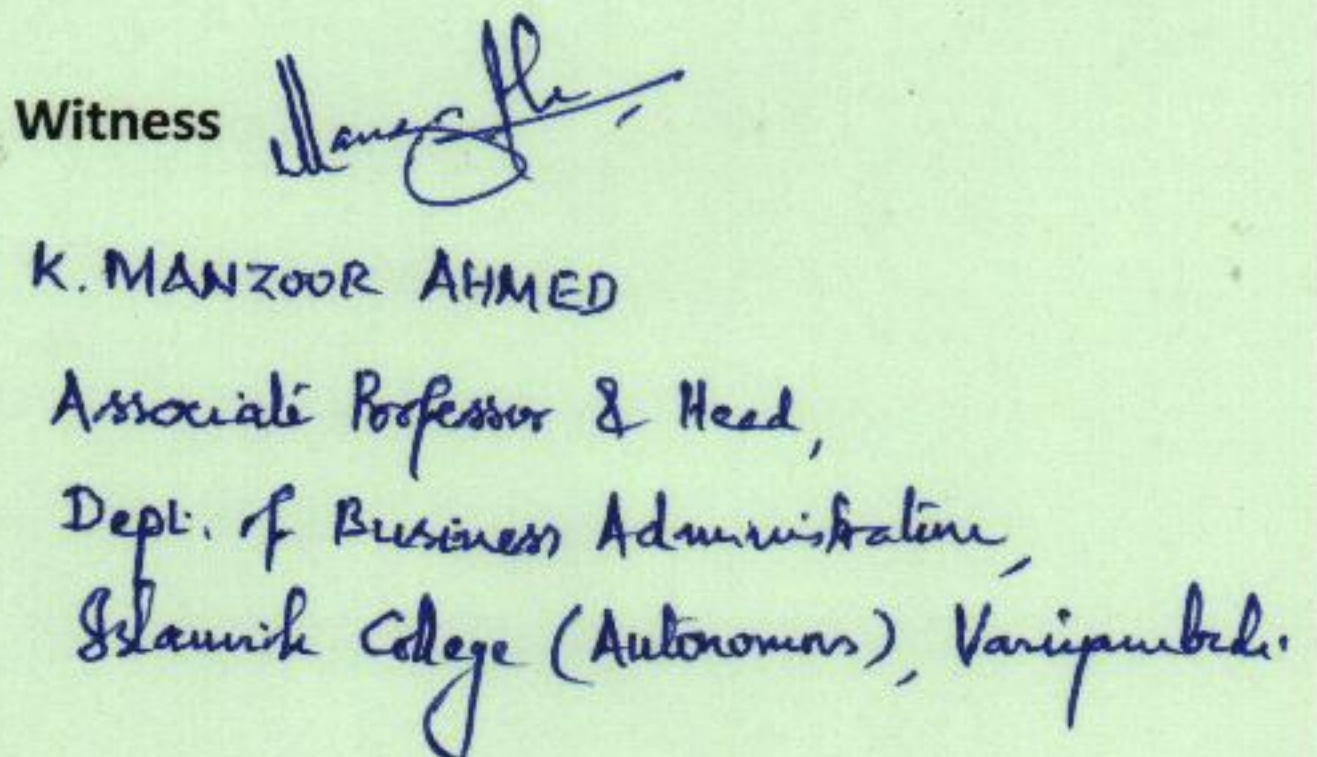 Witness
K. MANZOOR AHMED
Associate Professor & Head,
Dept. of Business Administration,
Islamiah College (Autonomous), Vaniyambadi.